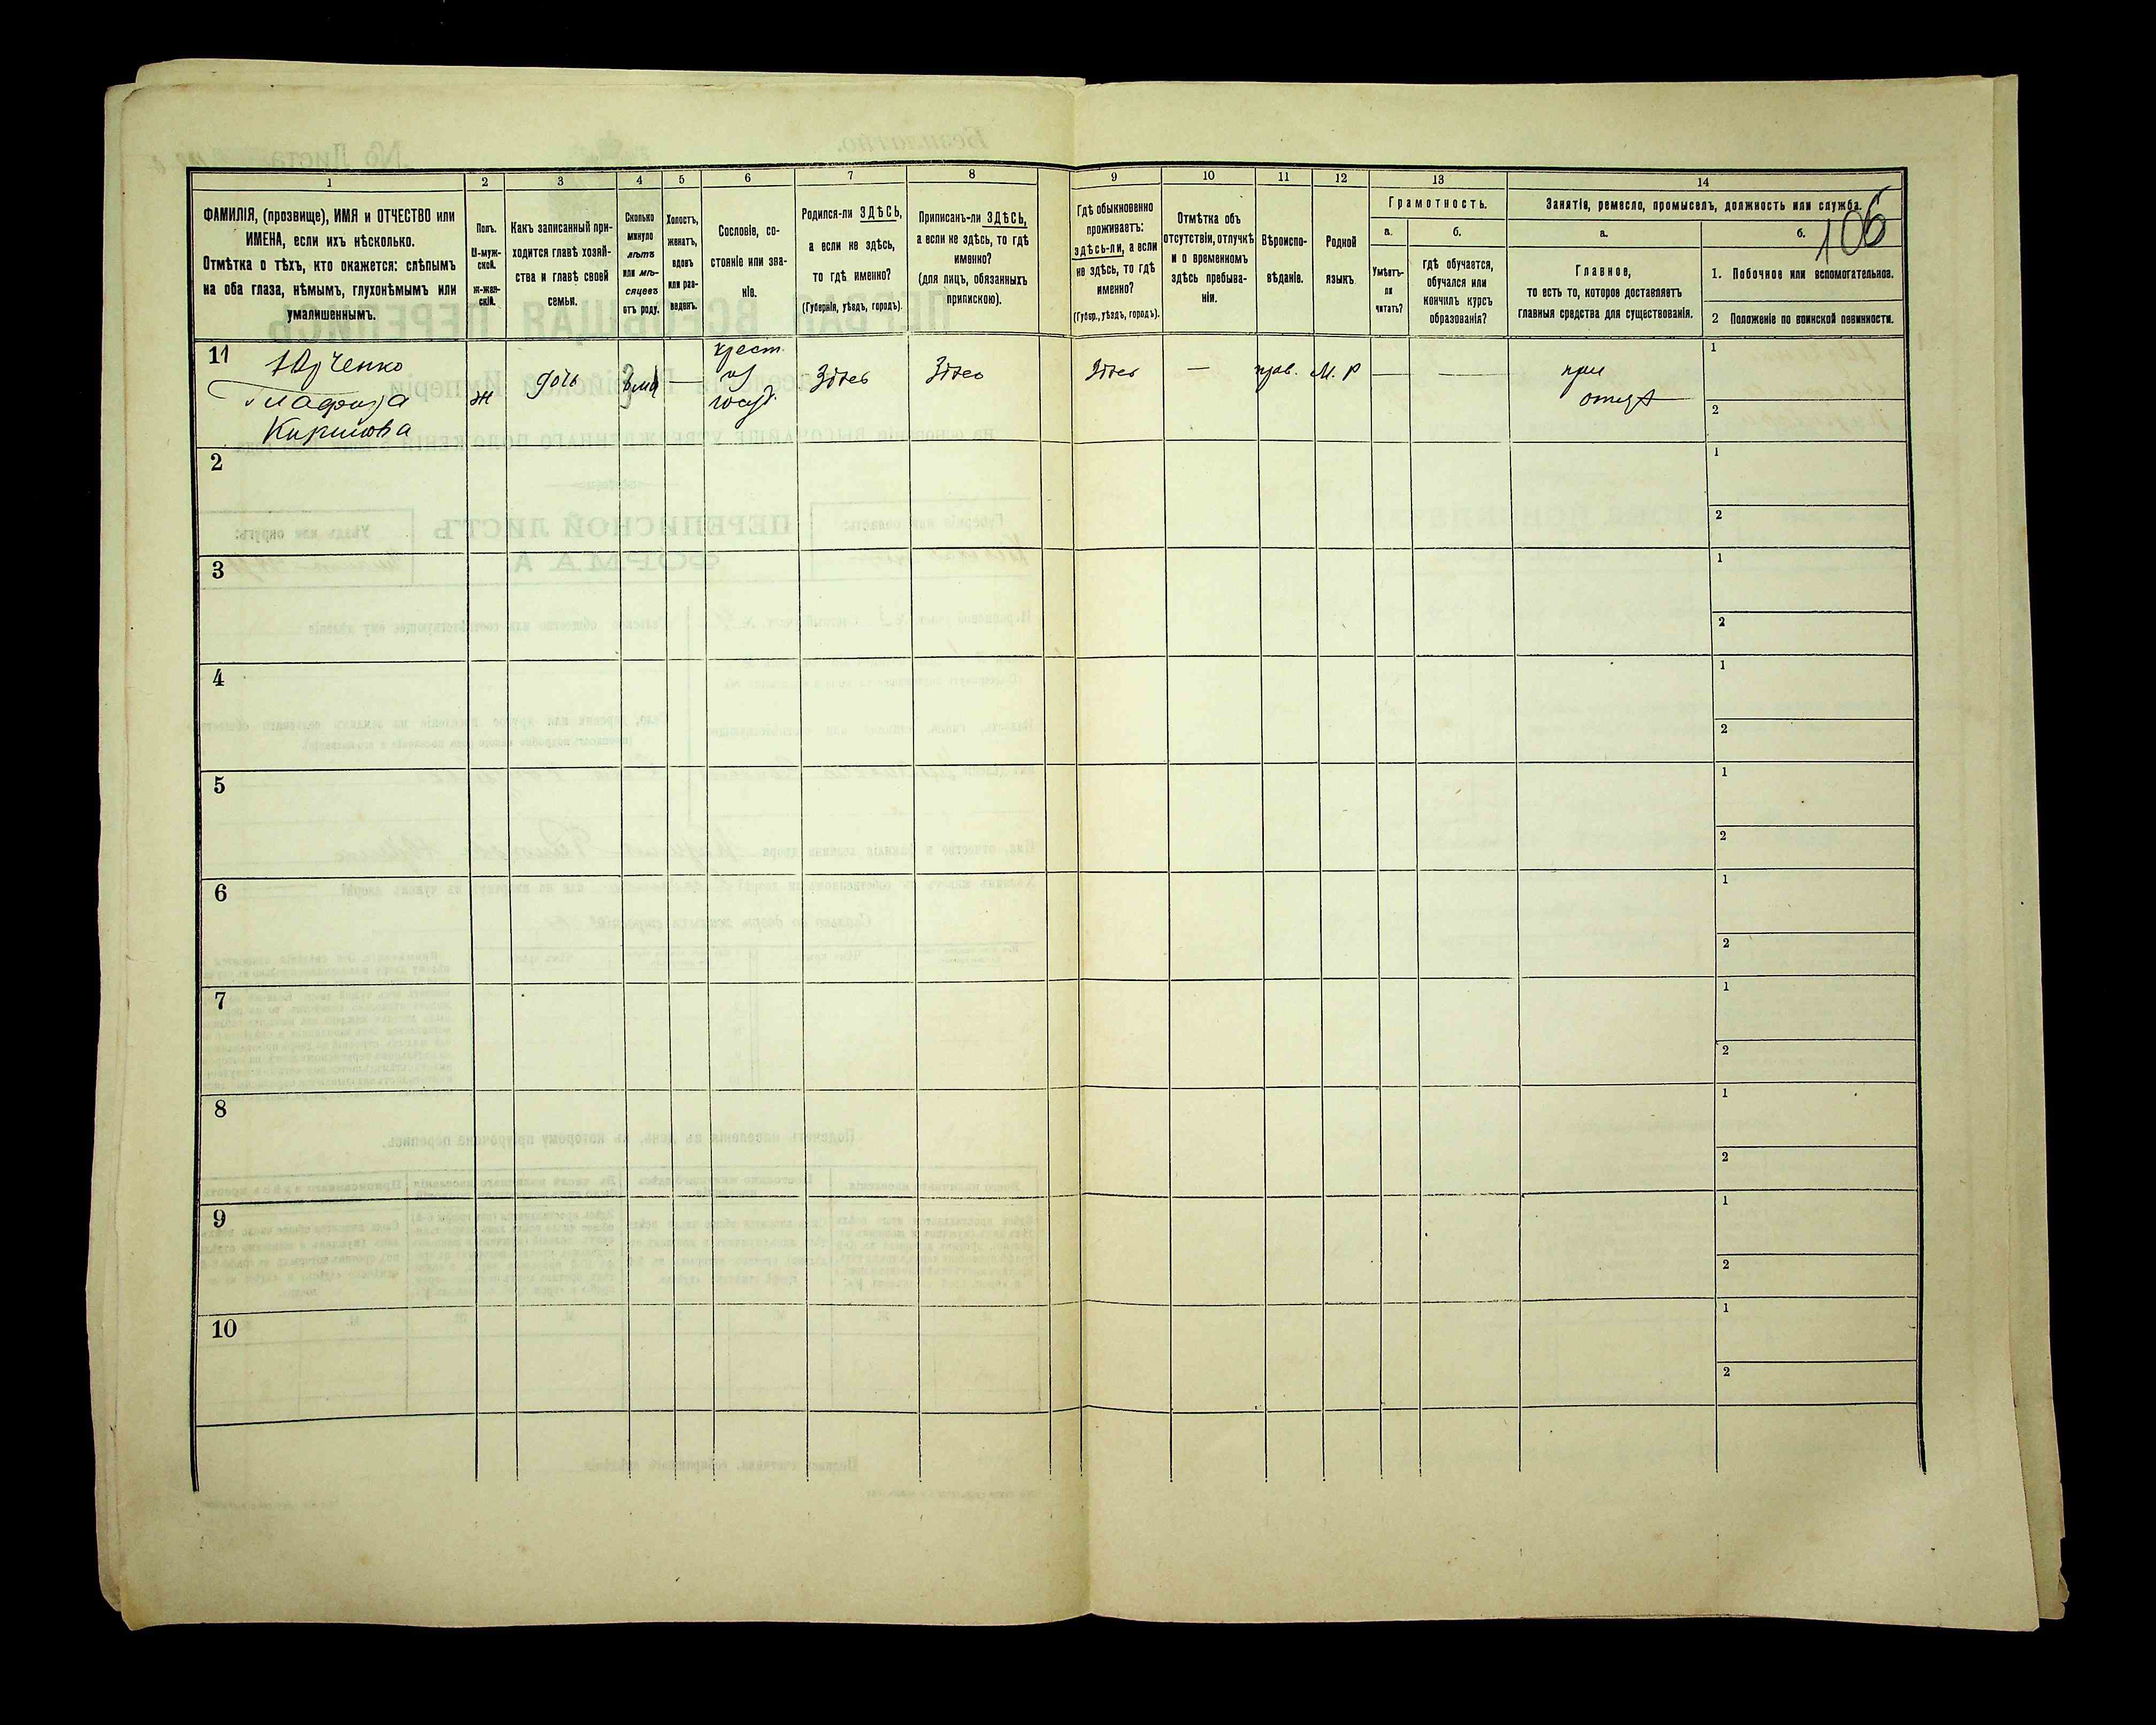 1
2
3
4
5
6
7
8
9
10
11
12
13
14
ФАМИЛІЯ, (прозвище), ИМЯ и ОТЧЕСТВО или
ИМЕНА, если ихъ нѣсколько.
Отмѣтка о тѣхъ, кто окажется: слѣпымъ
на оба глаза, нѣмымъ, глухонѣмымъ или
умалишеннымъ.
Полъ.
М-муж-
ской.
ж-жен-
скій.
Какъ записанный при-
ходится главѣ хозяй-
ства и главѣ своей
семьи.
Сколько
минуло
лѣтъ
или мѣ-
сяцевъ
отъ роду.
Холостъ,
женатъ,
вдовъ
или раз-
веденъ.
Сословіе, со-
стояніе или зва-
ніе.
Родился-ли ЗДѢСЬ,
а если не здѣсь,
то гдѣ именно?
(Губернія, уѣздъ, городъ).
Приписанъ-ли ЗДѢСЬ,
а если не здѣсь, то гдѣ
именно?
(для лицъ, обязанныхъ
припискою).
Гдѣ обыкновенно
проживаетъ:
здѣсь-ли, а если
не здѣсь, то гдѣ
именно?
(Губер., уѣздъ, городъ).
Отмѣтка объ
отсутствіи, отлучкѣ
и о временномъ
здѣсь пребыва-
ніи.
Вѣроиспо-
вѣданіе.
Родной
языкъ.
Грамотность.
а.
Умѣетъ-
ли
читать?
б.
гдѣ обучается,
обучался или
кончилъ курсъ
образованія?
Занятіе, ремесло, промыселъ, должность или служба.
106
а.
Главное,
то есть то, которое доставляетъ
главныя средства для существованія.
б.
1. Побочное или вспомогательное.
2 Положеніе по воинской повинности.
11
Юрченко
Глафира
Кирилова
ж
дочь
крест.
из
госуд.
Здѣсь
Здѣсь
Здѣсь
—
прав.
М. Р
при
отцѣ
1
2
2
1
2
3
1
2
4
1
2
5
1
2
6
1
2
7
1
2
8
1
2
9
1
2
10
1
2